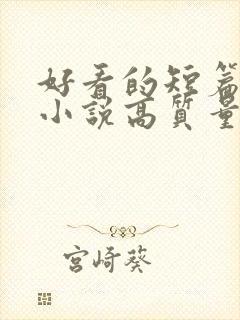 好看的短篇
小説高質量
宮崎葵